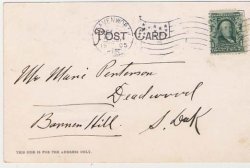 POST CARD
Mr Marie Penterson
Deadwood
Barren Hill S. Dak
THIS SIDE IS FOR THE ADDRESS ONLY.